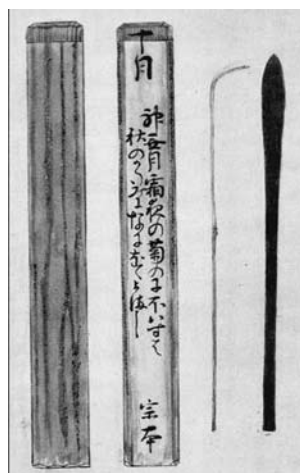 十月
神無月霜夜の菊のにほはずは
秋のかたみになにをおかまし
宗本